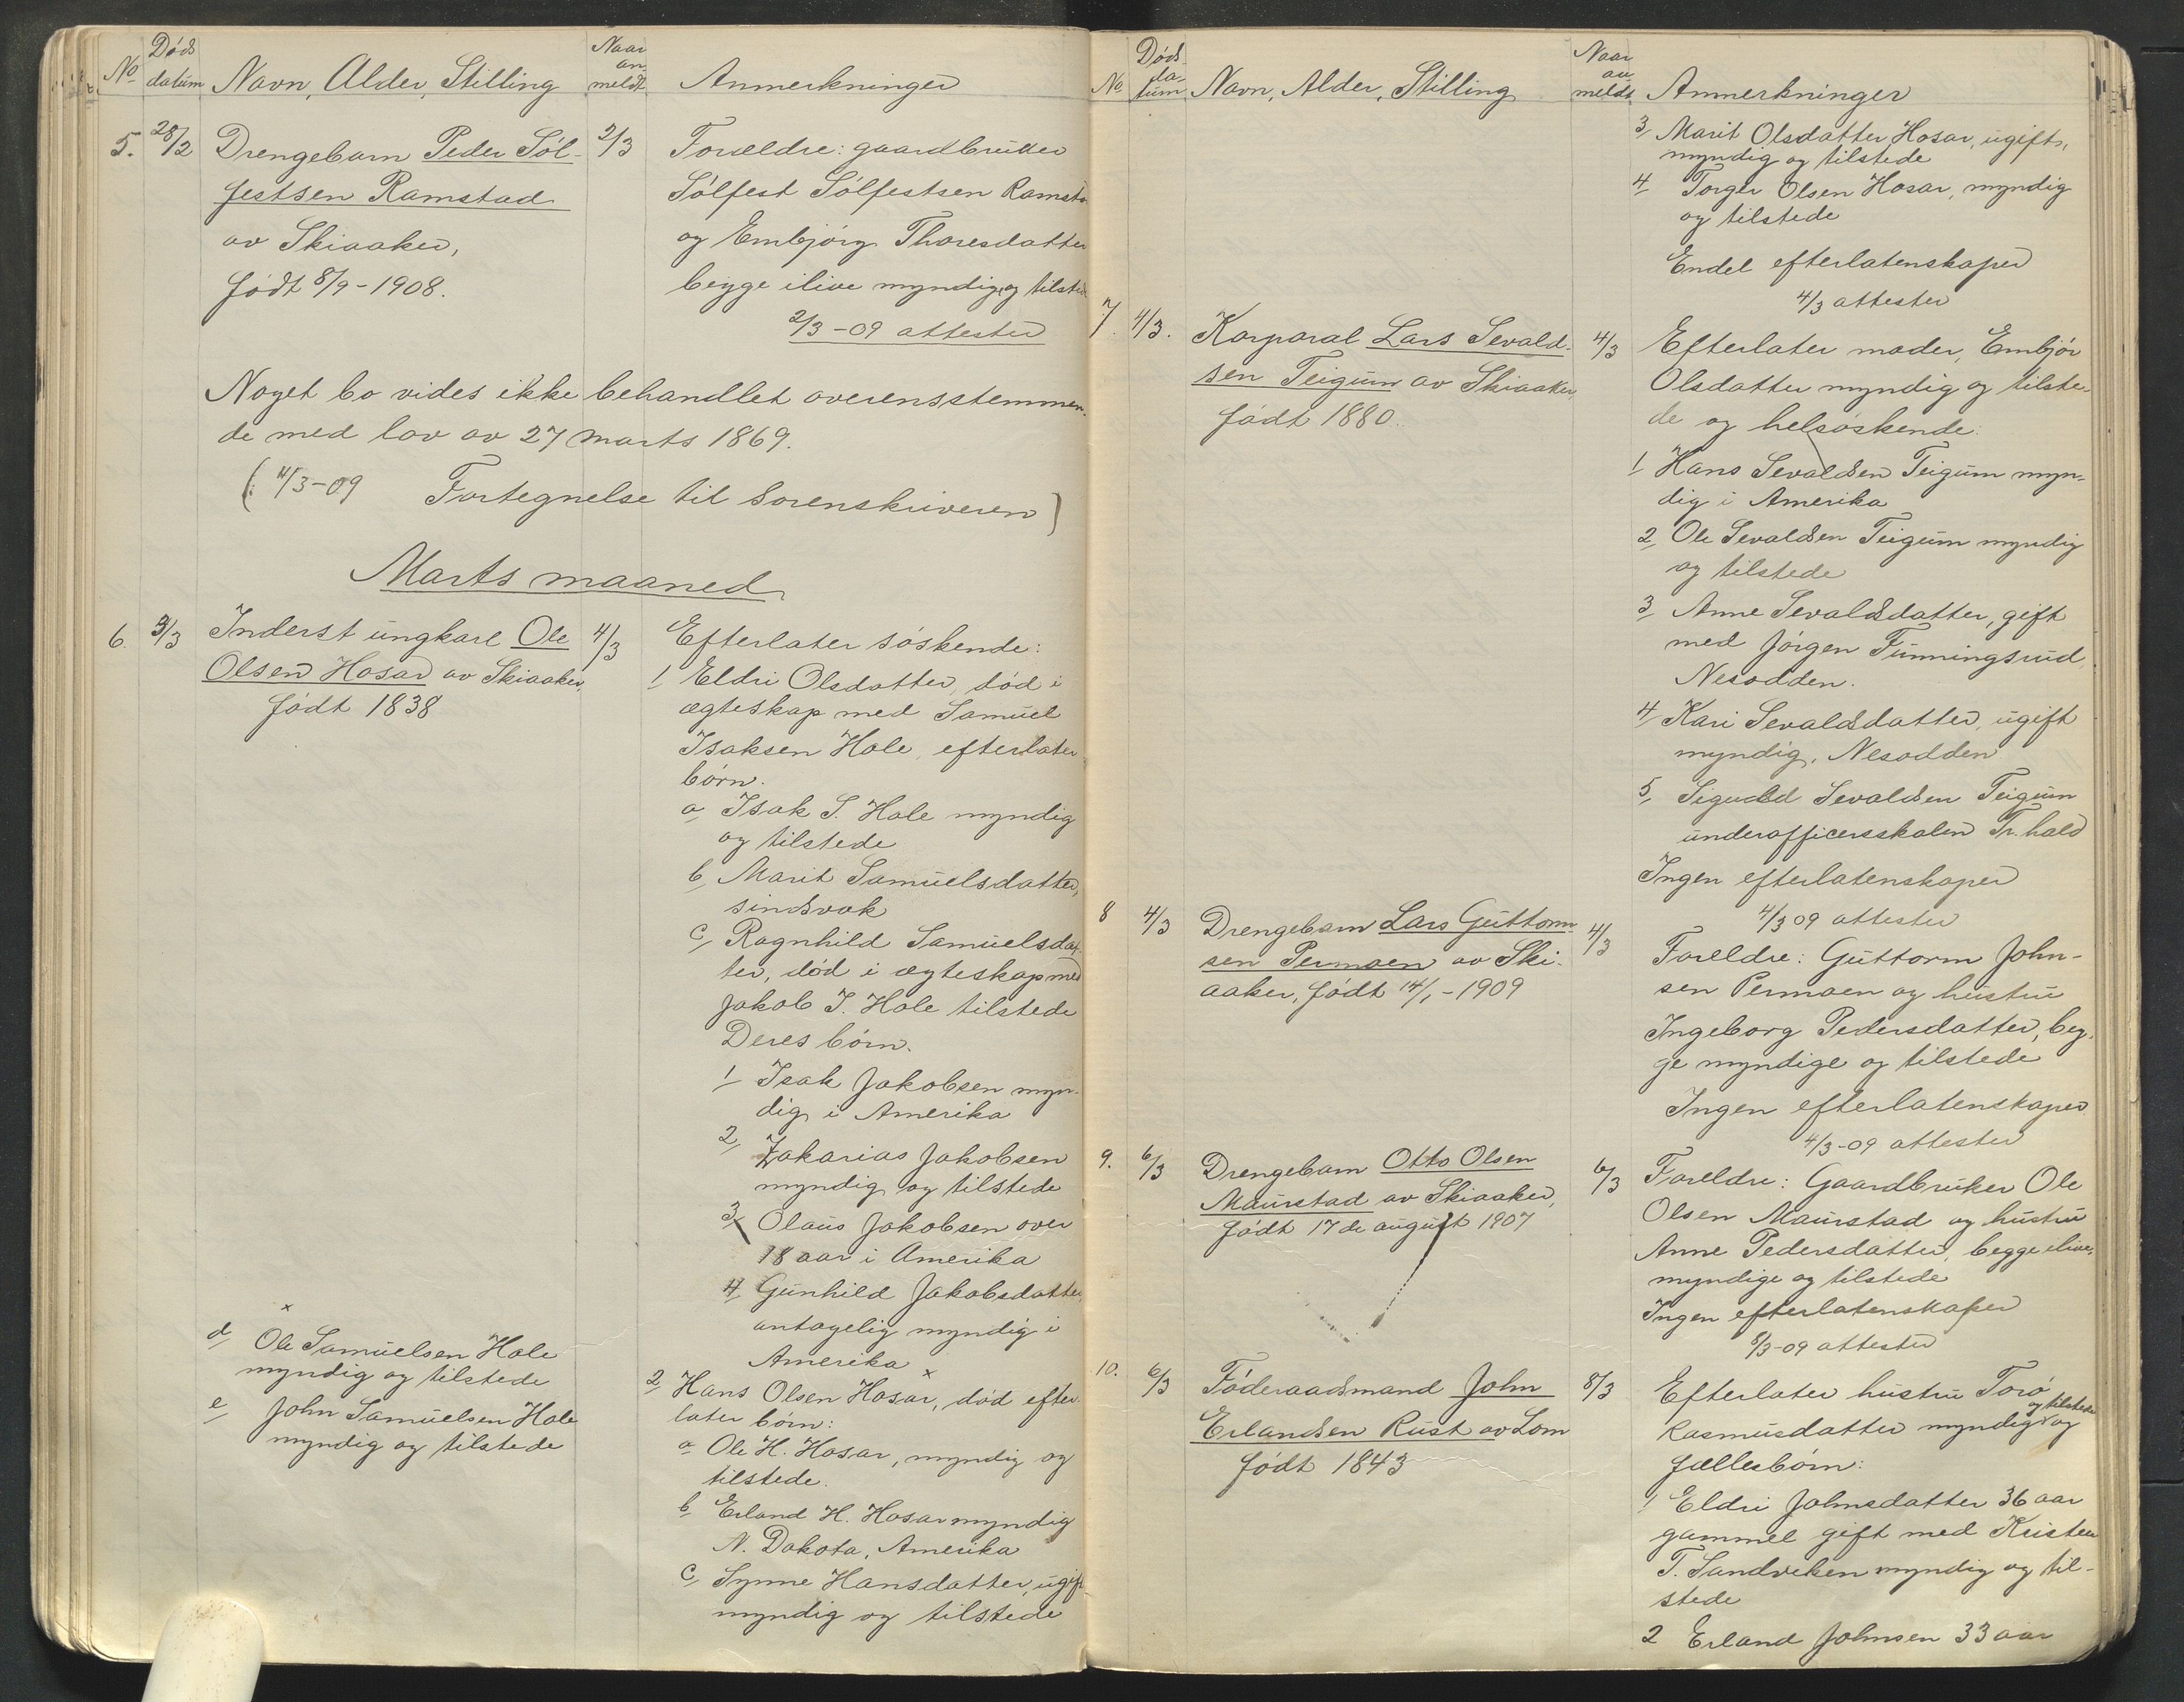 No Døds datum Navn, Alder, Stilling Naar an- meldt Anmerkninger
5. 28/2 Drengebarn Peder Søl-
festsen Ramstad
av Skiaaker,
født 8/9-1908.
2/3 Forældre: gaardbruker
Sølfest Sølfestsen Ramsta
og Embjørg Thoresdatter
begge ilive myndige og tilsted
2/3-09 attester
Noget bo vides ikke behandlet overensstemmen-
de med lov av 27 marts 1869.
(4/3-09 Fortegnelse til Sorenskriveren)
Marts maaned
6. 3/3 Inderst ungkarl Ole
Olsen Hosar av Skiaaker,
født 1838
4/3 Efterlater søskende:
1/ Eldri Olsdatter, død i
ægteskap med Samuel
Isaksen Hole, efterlater
børn.
a Isak S. Hole myndig
og tilstede
b, Marit Samuelsdatter,
sindsvak
c, Ragnhild Samuelsdat-
ter, død i ægteskap med
Jakob I. Hole tilstede
Deres børn.
1/ Isak Jakobsen myn-
dig i Amerika
2, Zakarias Jakobsen
myndig og tilstede
3, Olaus Jakobsen over
18 aar i Amerika
4, Gunhild Jakobsdatter,
antagelig myndig i
Amerika x
x
d, Ole Samuelsen Hole
myndig og tilstede
e, John Samuelsen Hole
myndig og tilstede
2, Hans Olsen Hosar, død efter-
later børn:
a Ole H. Hosar, myndig og
tilstede.
b, Erland H. Hosar myndig
N. Dakota, Amerika
c, Synne Hansdatter, ugift
myndig og tilstede
No Døds da- tum Navn, Alder, Stilling Naar an meldt Anmerkninger
3, Marit Olsdatter Hosar, ugift,
myndig og tilstede
4, Torger Olsen Hosar, myndig
og tilstede
Endel efterlatenskaper
4/3 attester
7. 4/3. Korporal Lars Sevald-
sen Teigum av Skiaaker,
født 1880.
4/3 Efterlater moder, Embjør
Olsdatter myndig og tilste-
de og helsøskende:
1 Hans Sevaldsen Teigum myn-
dig i Amerika
2, Ole Sevaldsen Teigum myndig
og tilstede
3, Anne Sevaldsdatter, gift
med Jørgen Funningsrud,
Nesodden.
4, Kari Sevaldsdatter, ugift
myndig, Nesodden
5, Sigurd Sevaldsen Teigum
underofficersskolen Tr.hald
Ingen efterlatenskaper
4/3 09 attester
8 4/3 Drengebarn Lars Guttorm-
sen Permoen av Ski-
aaker, født 14/1-1909
4/3 Foreldre: Guttorm John-
sen Permoen og hustru
Ingeborg Pedersdatter, beg-
ge myndige og tilstede
Ingen efterlatenskaper
4/3-09 attester
9. 6/3 Drengebarn Otto Olsen
Maurstad av Skiaaker,
født 17de august 1907
6/3 Foreldre: Gaardbruker Ole
Olsen Maurstad og hustru
Anne Pedersdatter, begge ilive,
myndige og tilstede
Ingen efterlatenskaper
8/3-09 attester
10. 6/3 Føderaadsmand John
Erlandsen Rust av Lom
født 1843
8/3 Efterlater hustru Torø
og tilstede
Rasmusdatter myndig og
fællesbørn:
1 Eldri Johnsdatter 36 aar
gammel gift med Kristen
T. Sandviken myndig og til-
stede
2 Erland Johnsen 33 aar